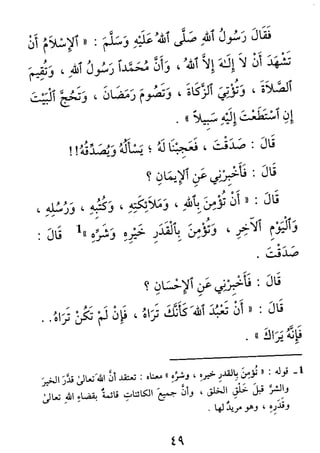 فَقَالَ رَسُولُ اللهِ صَلَّى اللهُ عَلَيْهِ وَسَلَّمَ : « الإِسْلَامُ أَنْ
تَشْهَدَ أَنْ لَا إِلَهَ إِلاَّ اللهُ ، وَأَنَّ مُحَمَّداً رَسُولُ اللهِ ، وَتُقِيمَ
الصَّلَاةَ ، وَتُؤْتِيَ الزَّكَاةَ ، وَتَصُومَ رَمَضَانَ ، وَتَحُجَّ الْبَيْتَ
إِنِ اسْتَطَعْتَ إِلَيْهِ سَبِيلاً » .
قَالَ : صَدَقْتَ ، فَعَجِبْنَا لَهُ ؛ يَسْأَلُهُ وَيُصَدِّقُهُ !!
قَالَ : فَأَخْبِرْنِي عَنِ الإِيمَانِ ؟
قَالَ : « أَنْ تُؤْمِنَ بِاللهِ ، وَمَلَائِكَتِهِ ، وَكُتُبِهِ ، وَرُسُلِهِ ،
وَالْيَوْمِ الآخِرِ ، وَتُؤْمِنَ بِالْقَدَرِ خَيْرِهِ وَشَرِّهِ »1 قَالَ :
صَدَقْتَ .
قَالَ : فَأَخْبِرْنِي عَنِ الإِحْسَانِ ؟
قَالَ : « أَنْ تَعْبُدَ اللهَ كَأَنَّكَ تَرَاهُ ، فَإِنْ لَمْ تَكُنْ تَرَاهُ . .
فَإِنَّهُ يَرَاكَ » .
1 - قوله : « تُؤمِنَ بِالقدرِ خيرِهِ ، وشرِّه » معناه : تعتقد أنَّ الله تعالىٰ قدَّرَ الخيرَ
والشرَّ قبلَ خَلْقِ الخلق ، وأنَّ جميعَ الكائناتِ قائمةٌ بقضاءِ اللهِ تعالىٰ
وقدَرِهِ ، وهو مريدٌ لها .
٤٩